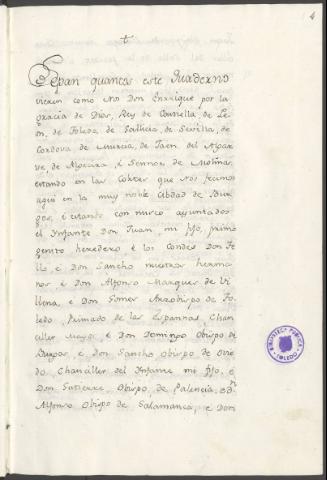 4
Sepan quantos este Quaderno
vieren como Nos Don Enrique por la
gracia de Dios, Rey de Castella de Le-
on, de Toledo de Gallicia, de Sevilla, de
Cordova de Murcia, de Jaen del Algar-
ve, de Algecira, é Sennor de Molina;
estando en las Cortes que Nos fecimos
aqui en la muy noble Cibdad de Bur-
gos, é estando con nusco ayuntados
el Infante Don Juan, mi fijo, primo
genito heredero é los Condes Don Te-
llo é Don Sancho nuestros herma-
nos é Don Alfonso Marques de Vi-
llena, é Don Gomes Arzobispo de To-
ledo, Primado de las Espannas, Chan-
ciller Mayor é Don Domingo Obispo de
Burgos, é Don Sancho, obispo de Ovie
do, Chanciller del Infante mi fijo, é
Don Gutierre, Obispo, de Palencia, é Dn
Alfonso Obispo de Salamanca, é Don
BIBLIOTECA PUBLICA
TOLEDO